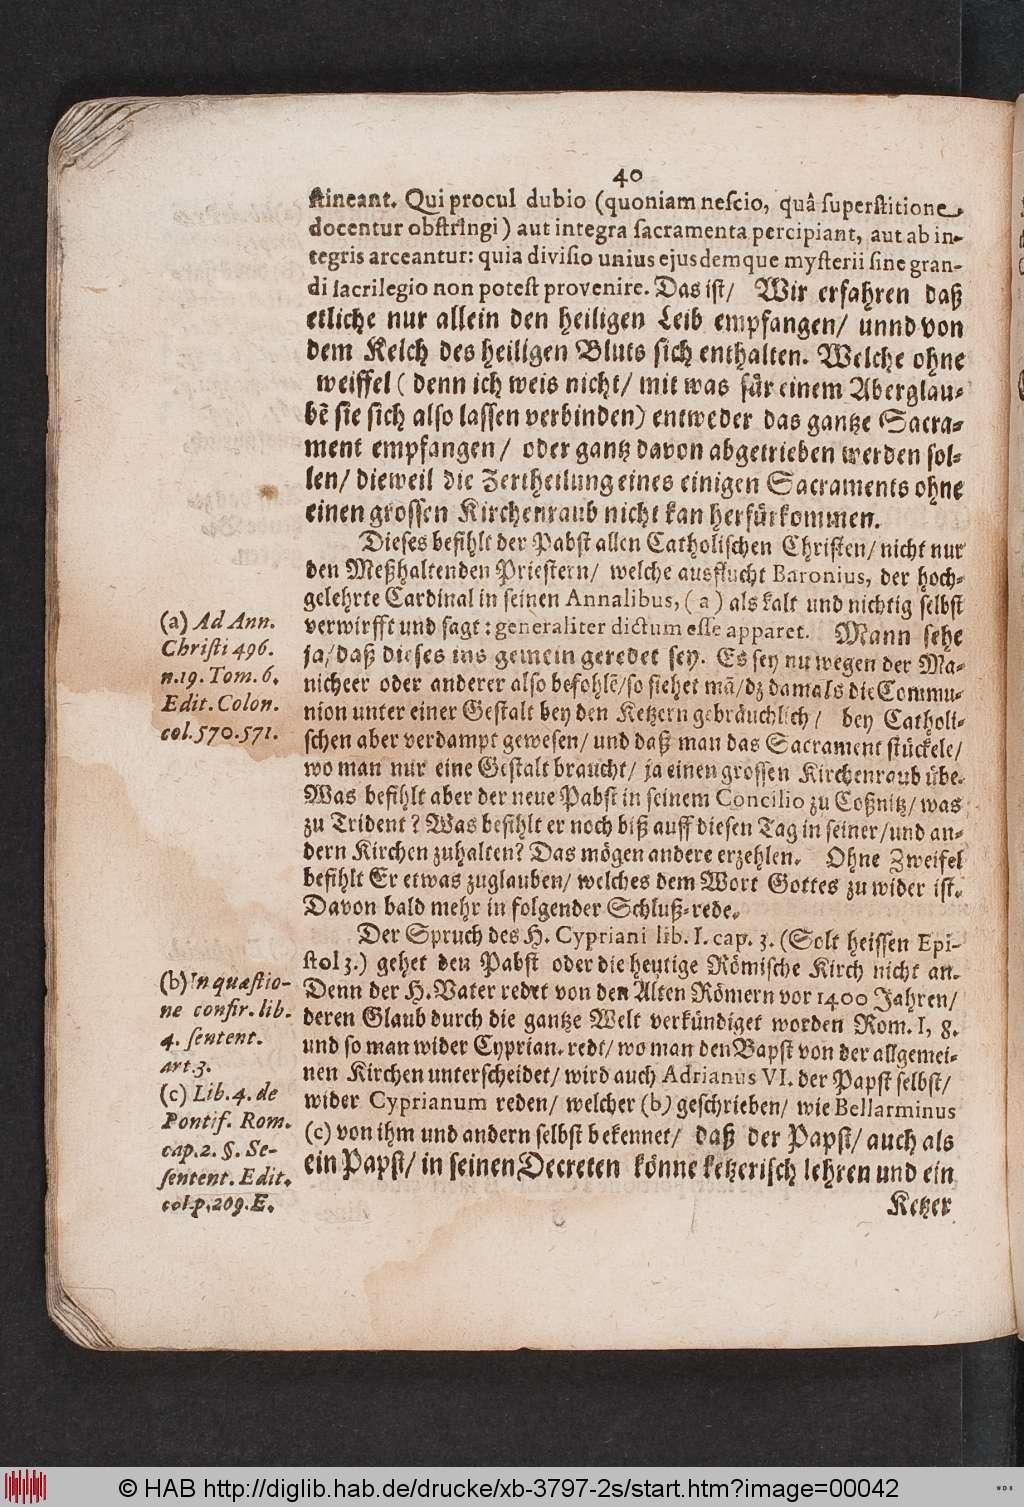 40
stineant. Qui procul dubio (quoniam nescio, quâ superstitione
docentur obstringi) aut integra sacramenta percipiant, aut ab in-
tegris arceantur: quia divisio unius ejusdemque mysterii sine gran-
di sacrilegio non potest provenire. Das ist/ Wir erfahren daß
etliche nur allein den heiligen Leib empfangen/ unnd von
dem Kelch des heiligen Bluts sich enthalten. Welche ohne
weiffel (denn ich weis nicht/ mit was für einem Aberglau-
bẽ sie sich also lassen verbinden) entweder das gantze Sacra-
ment empfangen/ oder gantz davon abgetrieben werden sol-
len/ dieweil die Zertheilung eines einigen Sacraments ohne
einen grossen Kirchenraub nicht kan herfürkommen.
Dieses befihlt der Pabst allen Catholischen Christen/ nicht nur
den Meßhaltenden Priestern/ welche ausflucht Baronius, der hoch-
gelehrte Cardinal in seinen Annalibus, (a) als kalt und nichtig selbst
verwirfft und sagt: generaliter dictum esse apparet. Mann sehe
ja/ daß dieses ins gemein geredet sey. Es sey nu wegen der Ma-
nicheer oder anderer also befohlẽ/ so siehet mã/ dz damals die Commu-
nion unter einer Gestalt bey den Ketzern gebräuchlich/ bey Catholi-
schen aber verdampt gewesen/ und daß man das Sacrament stückele/
wo man nur eine Gestalt braucht/ ja einen grossen Kirchenraub übe.
Was befihlt aber der neue Pabst in seinem Concilio zu Coßnitz/ was
zu Trident? Was befihlt er noch biß auff diesen Tag in seiner/ und an-
dern Kirchen zuhalten? Das mögen andere erzehlen. Ohne Zweifel
befihlt Er etwas zuglauben/ welches dem Wort Gottes zu wider ist.
Davon bald mehr in folgender Schluß-rede.
Der Spruch des H. Cypriani lib. I. cap. 3. (Solt heissen Epi-
stol 3.) gehet den Pabst oder die heutige Römische Kirch nicht an.
Denn der H. Vater redet von den Alten Römern vor 1400 Jahren/
deren Glaub durch die gantze Welt verkündiget worden Rom. I, 8.
und so man wider Cyprian. redt/ wo man den Bapst von der allgemei-
nen Kirchen unterscheidet/ wird auch Adrianus VI. der Papst selbst/
wider Cyprianum reden/ welcher (b) geschrieben/ wie Bellarminus
(c) von ihm und andern selbst bekennet/ daß der Papst/ auch als
ein Papst/ in seinen Decreten könne ketzerisch lehren und ein
Ketzer
(a) Ad Ann.
Christi 496.
n. 19. Tom. 6.
Edit. Colon.
col. 570. 571.
(b) In quæstio-
ne confir. lib.
4. sentent.
art. 3.
(c) Lib. 4. de
Pontif. Rom.
cap. 2. §. Se-
sentent. Edit.
col. p. 209. E.
© HAB http://diglib.hab.de/drucke/xb-3797-2s/start.htm?image=00042